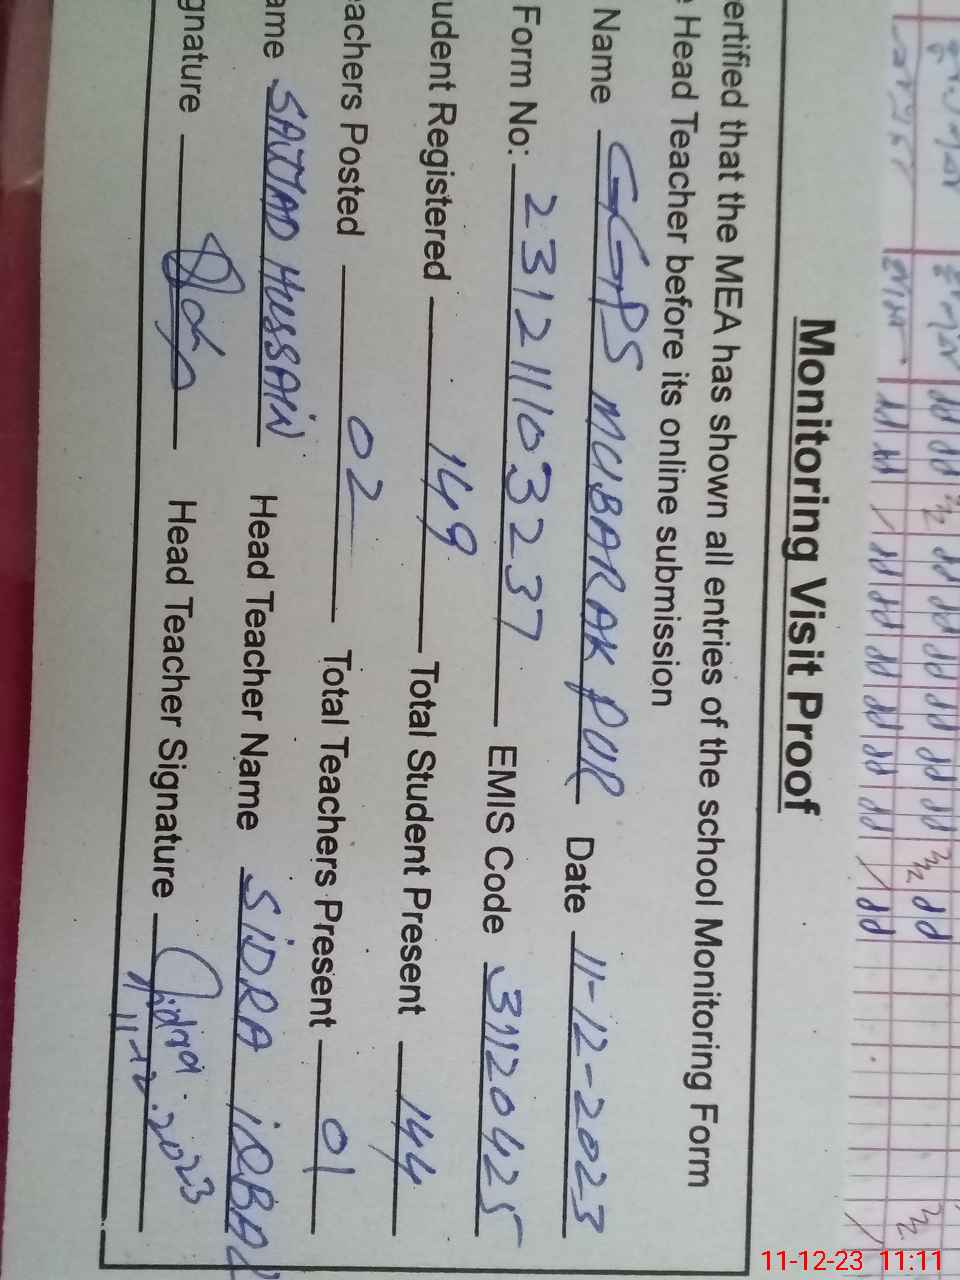 Monitoring Visit Proof
ertified that the MEA has shown all entries of the school Monitoring Form
e Head Teacher before its online submission
Name GGPS MUBARAK PUR Date 11-12-2023
Form No: 231211103237 EMIS Code 31120425
udent Registered 149 Total Student Present 144
eachers Posted 02 Total Teachers Present 01
ame SAJJAD HUSSAIN Head Teacher Name SIDRA IQBAL
gnature Head Teacher Signature Sidra
11-12-2023
11-12-23 11:11